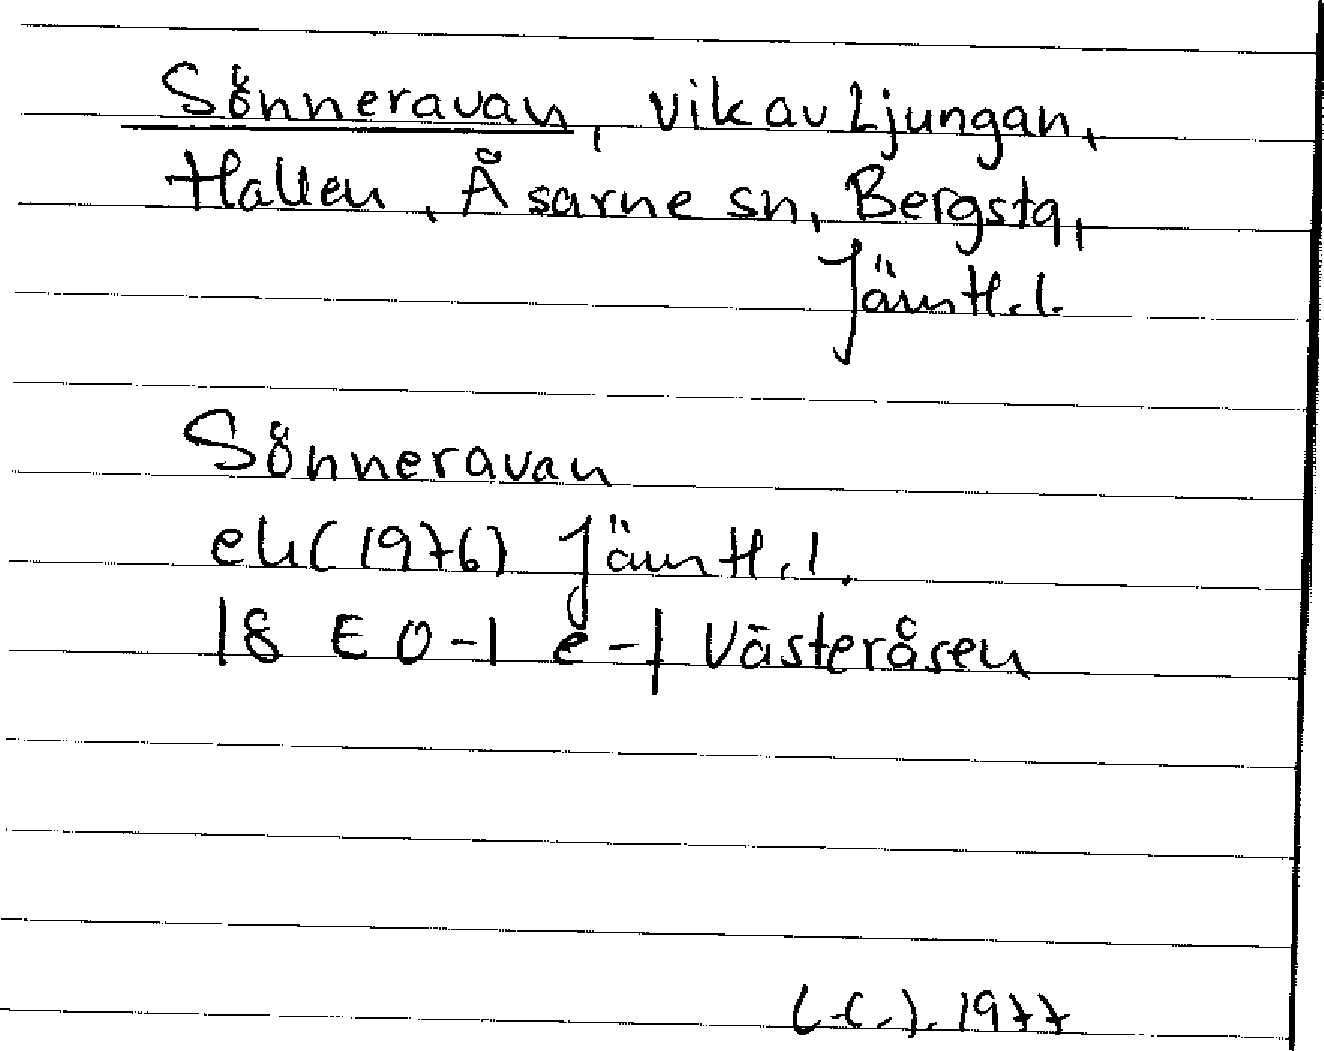 Sönneravan, vik av Ljungan,
Hallen, Åsarne sn, Bergstg,
Jämtl. l.
Sönneravan
ek (1976) Jämtl. l.
18 E 0-1 e-f Västeråsen
1977